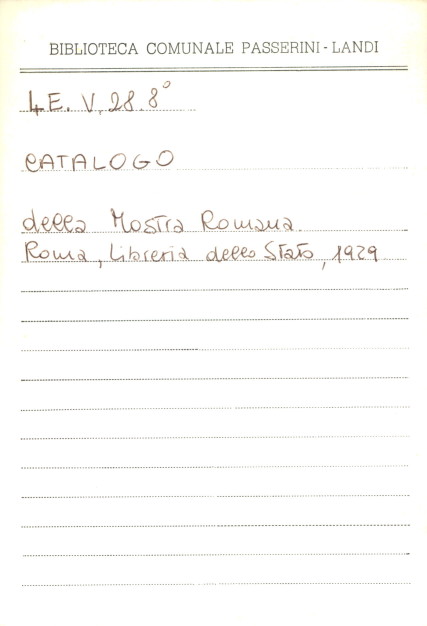 BIBLIOTECA COMUNALE PASSERINI - LANDI
4E. V, 28. 8°
CATALOGO
della Mostra Romana
Roma, Libreria dello Stato, 1929